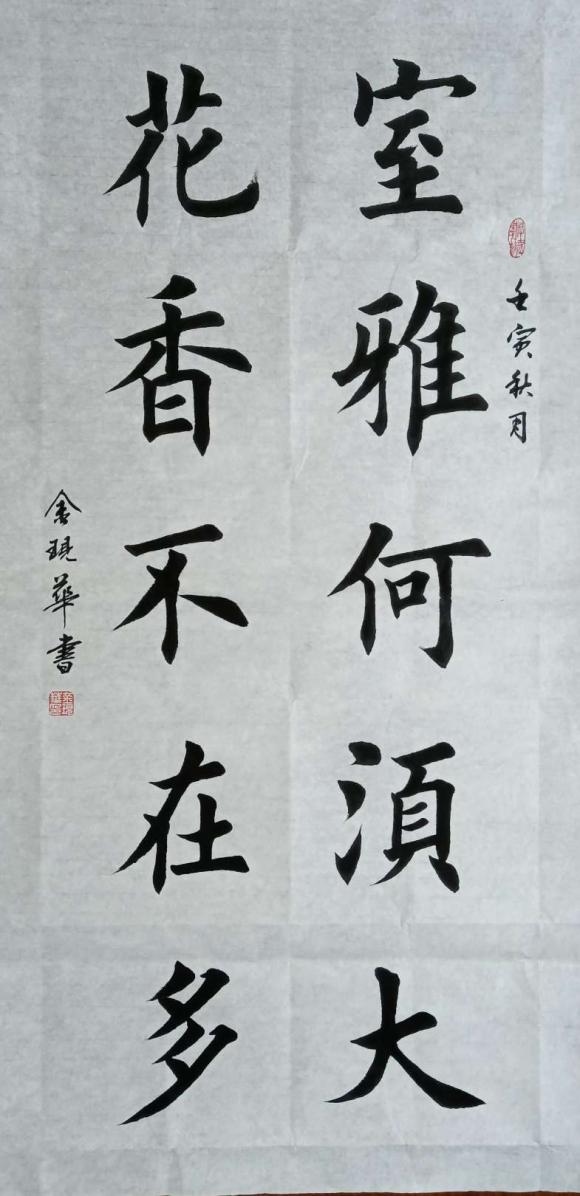 壬寅秋月
室雅何須大
花香不在多
現華書